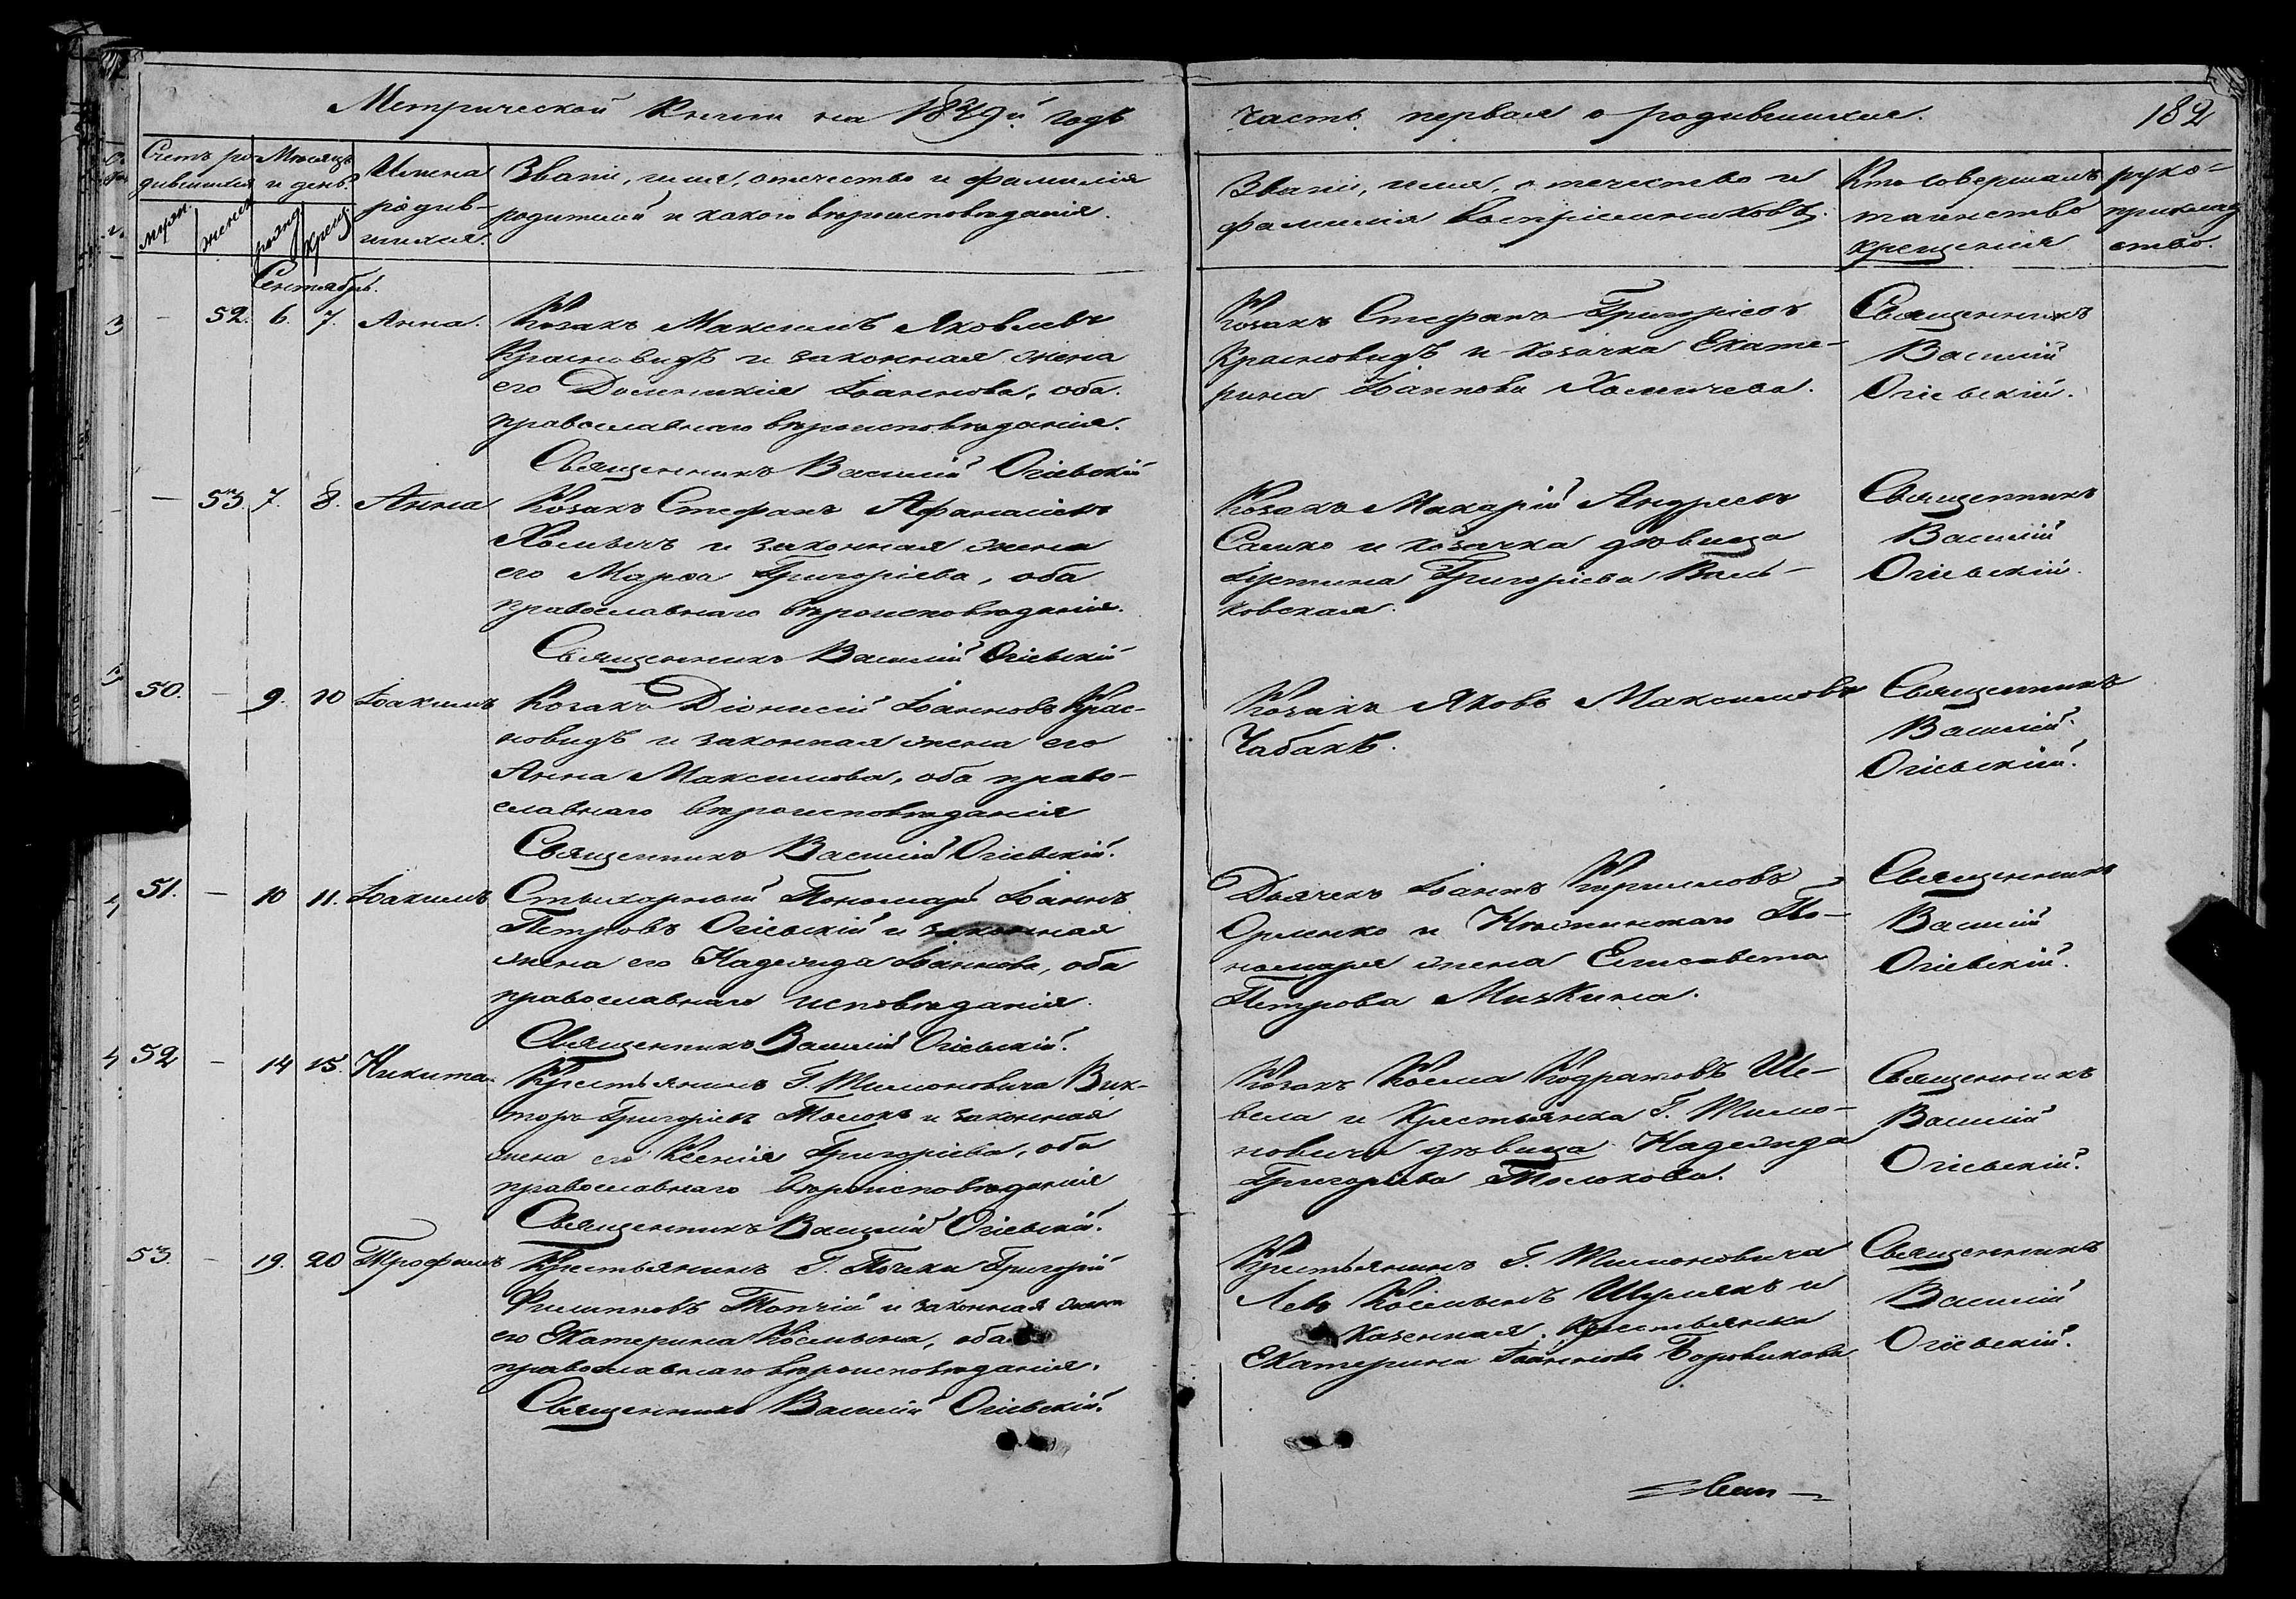 Метрической Книги на 1849й годъ
часть первая о родившихся.
182
Счетъ ро-
дившихся
Мѣсяцъ
и день.
Имена
родив-
шихся.
Званіе, имя, отечество и фамилія
родителей и какого вѣроисповѣданія.
Званіе, имя, отечество и
фамилія воспріемниковъ.
Кто совершалъ
таинство
крещенія
руко-
приклад
ство.
муж.
женск
рожд
крещ
Сентябрь.
— 52. 6. 7. Анна.
Козакъ Максимъ Яковлевъ
Красновидъ и законная жена
его Домникія Іоаннова, оба
православнаго вѣроисповѣданія.
Священникъ Василій Огіевскій
Козакъ Стефанъ Григоріевъ
Красновидъ и козачка Екате-
рина Іоаннова Хомичева.
Священникъ
Василій
Огіевскій.
— 53. 7. 8. Анна
Козакъ Стефанъ Афанасіевъ
Хомичъ и законная жена
его Марѳа Григоріева, оба
православнаго вѣроисповѣданія.
Священникъ Василій Огіевскій
Козакъ Макарій Андреевъ
Сашко и козачка дѣвица
Іустина Григоріева Вась-
ковская.
Священникъ
Василій
Огіевскій.
50. — 9. 10 Іоакимъ
Козакъ Діонисій Іоанновъ Крас-
новидъ и законная жена его
Анна Максимова, оба право-
славнаго вѣроисповѣданія
Священникъ Василій Огіевскій.
Козакъ Яковъ Максимовъ
Чабакъ.
Священникъ
Василій
Огіевскій.
51. — 10 11. Іоакимъ
Стихарный Пономарь Іоаннъ
Петровъ Огіевскій и законная
жена его Надежда Іоаннова, оба
православнаго исповѣданія.
Священникъ Василій Огіевскій.
Дьячекъ Іоаннъ Кирилловъ
Орленко и По-
номаря жена Елисавета
Петрова Мизкина.
Священникъ
Василій
Огіевскій.
52 — 14 15. Никита
Крестьянинъ Г. Тимоновича Вик-
торъ Григоріевъ Толокъ и законная
жена его Ксенія Григоріева, оба
православнаго вѣроисповѣданія
Священникъ Василій Огіевскій.
Козакъ Косма Кодратовъ Ше-
вела и Крестьянка Г. Тимо-
новича дѣвица Надежда
Григорьева Толокова.
Священникъ
Василій
Огіевскій.
53. — 19. 20 Трофимъ
Крестьянинъ Г. Почеки Григорій
Филипповъ Топчій и законная жена
его Екатерина Космина, оба
православнаго вѣроисповѣданія.
Священникъ Василій Огіевскій.
Крестьянинъ Г. Тимоновича
Левъ Косминъ Шумякъ и
Казенная Крестьянка
Екатерина Іоаннова Боровикова
Священникъ
Василій
Огіевскій.